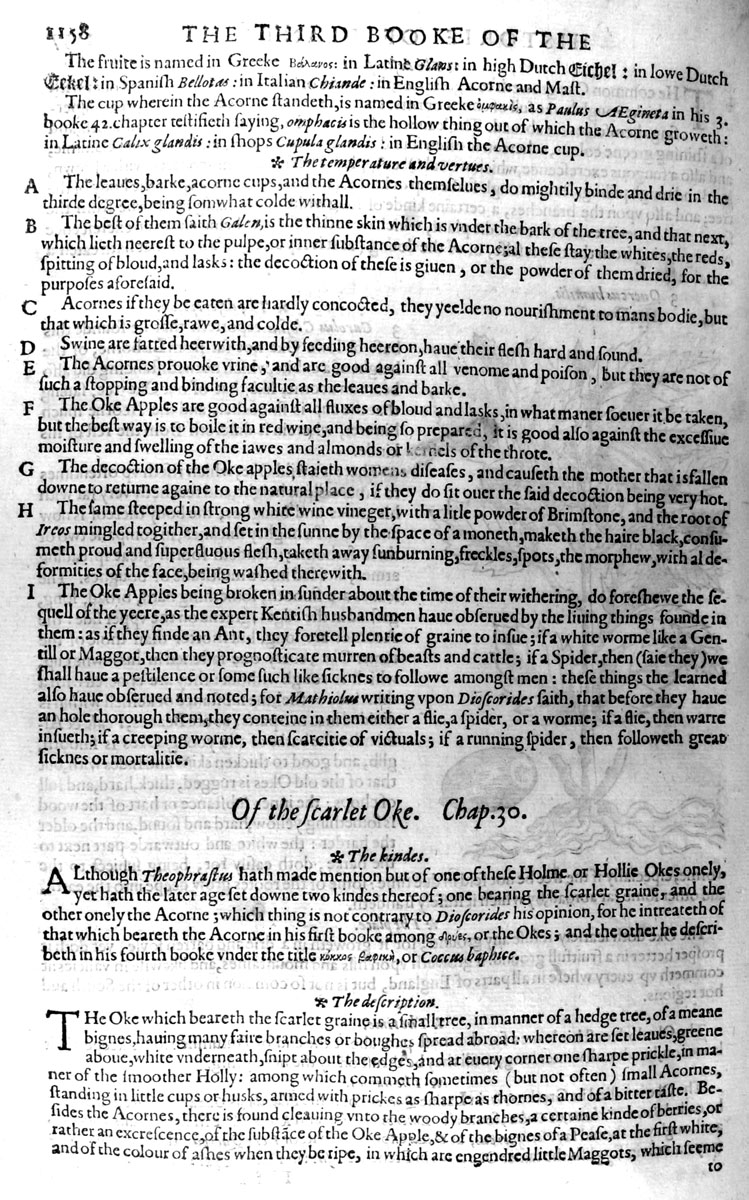 1158 THE THIRD BOOKE OF THE
The fruite is named in Greeke Βάλανος: in Latine Glans: in high Dutch Eichel: in lowe Dutch
Eckel: in Spanish Bellotas: in Italian Chiande: in English Acorne and Mast.
The cup wherein the Acorne standeth, is named in Greeke ὀμφακὶς, as Paulus AEgineta in his 3.
booke 42. chapter testifieth saying, omphacis is the hollow thing out of which the Acorne groweth:
in Latine Calix glandis: in shops Cupula glandis: in English the Acorne cup.
❧ The temperature and vertues.
A The leaues, barke, acorne cups, and the Acornes themselues, do mightily binde and drie in the
thirde degree, being somwhat colde withall.
B The best of them saith Galen, is the thinne skin which is vnder the bark of the tree, and that next,
which lieth neerest to the pulpe, or inner substance of the Acorne; al these stay the whites, the reds,
spitting of bloud, and lasks: the decoction of these is giuen, or the powder of them dried, for the
purposes aforesaid.
C Acornes if they be eaten are hardly concocted, they yeelde no nourishment to mans bodie, but
that which is grosse, rawe, and colde.
D Swine are fatted heerwith, and by feeding heereon, haue their flesh hard and sound.
E The Acornes prouoke vrine, and are good against all venome and poison, but they are not of
such a stopping and binding facultie as the leaues and barke.
F The Oke Apples are good against all fluxes of bloud and lasks, in what maner soeuer it be taken,
but the best way is to boile it in red wine, and being so prepared, it is good also against the excessiue
moisture and swelling of the iawes and almonds or kernels of the throte.
G The decoction of the Oke apples staieth womens diseases, and causeth the mother that is fallen
downe to returne againe to the naturall place, if they do sit ouer the said decoction being very hot.
H The same steeped in strong white wine vineger, with a litle powder of Brimstone, and the root of
Ireos mingled togither, and set in the sunne by the space of a moneth, maketh the haire black, consu-
meth proud and superfluous flesh, taketh away sunburning, freckles, spots, the morphew, with al de-
formities of the face, being washed therewith.
I The Oke Apples being broken in sunder about the time of their withering, do foreshewe the se-
quell of the yeere, as the expert Kentish husbandmen haue obserued by the liuing things founde in
them: as if they finde an Ant, they foretell plentie of graine to insue; if a white worme like a Gen-
till or Maggot, then they prognosticate murren of beasts and cattle; if a Spider, then (saie they) we
shall haue a pestilence or some such like sicknes to followe amongst men: these things the learned
also haue obserued and noted; for Mathiolus writing vpon Dioscorides saith, that before they haue
an hole thorough them, they conteine in them either a flie, a spider, or a worme; if a flie, then warre
insueth; if a creeping worme, then scarcitie of victuals; if a running spider, then followeth great
sicknes or mortalitie.
Of the scarlet Oke. Chap. 30.
❧ The kindes.
ALthough Theophrastus hath made mention but of one of these Holme or Hollie Okes onely,
yet hath the later age set downe two kindes thereof; one bearing the scarlet graine, and the
other onely the Acorne; which thing is not contrary to Dioscorides his opinion, for he intreateth of
that which beareth the Acorne in his first booke among Δρύες, or the Okes; and the other he descri-
beth in his fourth booke vnder the title κόκκος βαφικὴ, or Coccus baphice.
❧ The description.
THe Oke which beareth the scarlet graine is a small tree, in manner of a hedge tree, of a meane
bignes, hauing many faire branches or boughes spread abroad: whereon are set leaues, greene
aboue, white vnderneath, snipt about the edges, and at euery corner one sharpe prickle, in ma-
ner of the smoother Holly: among which commeth somtimes (but not often) small Acornes,
standing in little cups or husks, armed with prickes as sharpe as thornes, and of a bitter taste. Be-
sides the Acornes, there is found cleauing vnto the woody branches, a certaine kinde of berries, or
rather an excrescence, of the substāce of the Oke Apple, & of the bignes of a Pease, at the first white,
and of the colour of ashes when they be ripe, in which are engendred little Maggots, which seeme
to